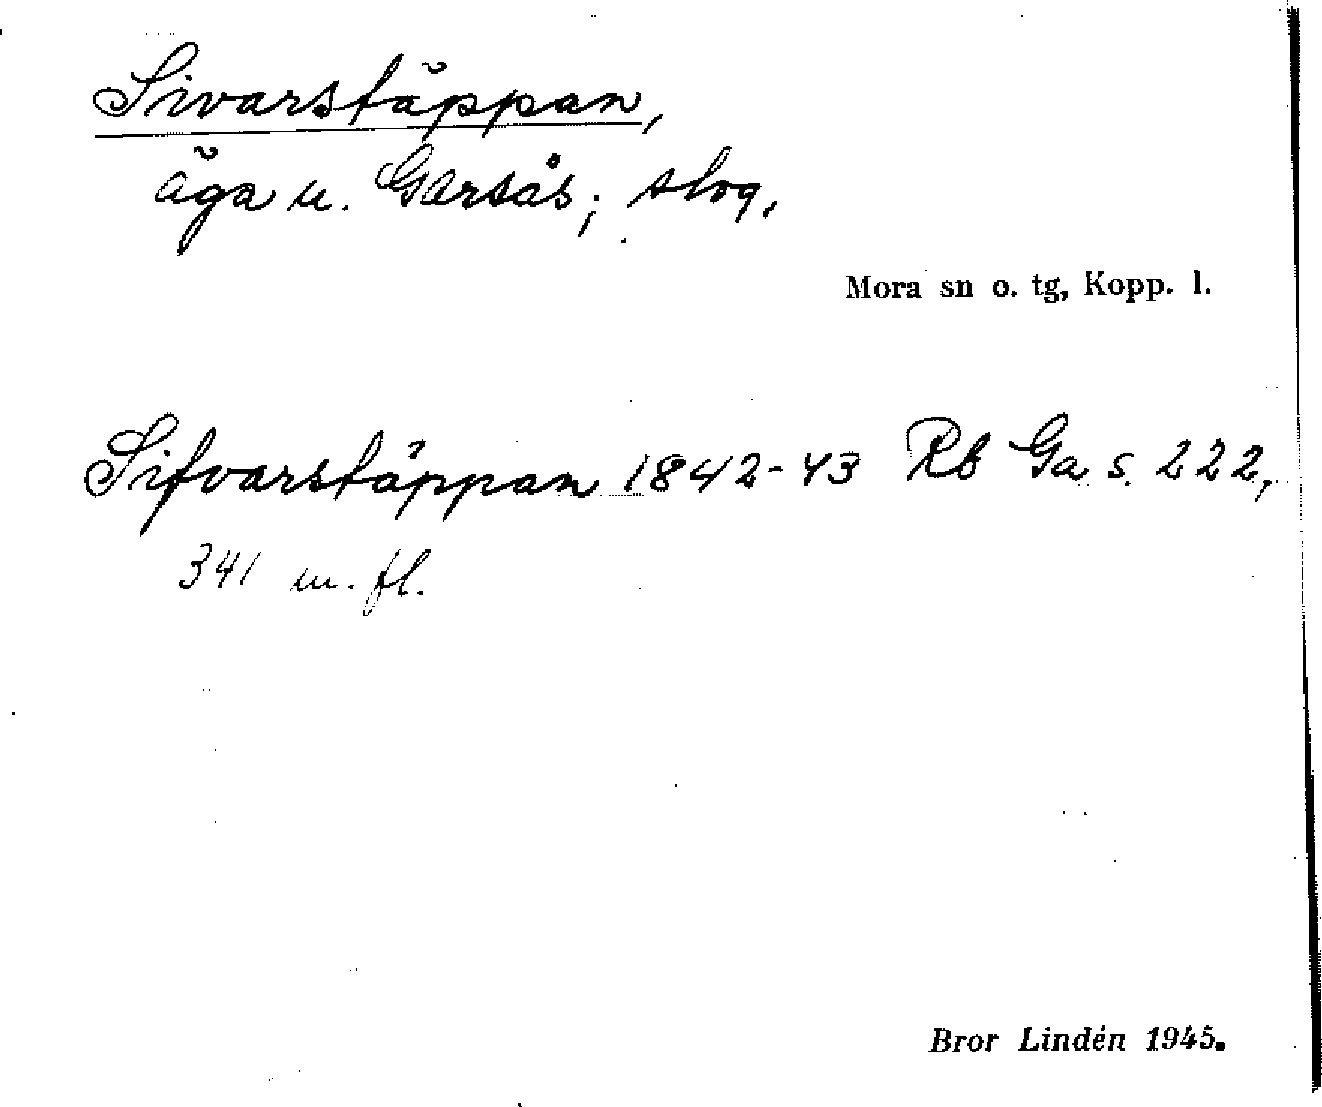 Sivarstäppan,
äga u. Garsås; slog.
Mora sn o. tg, Kopp. l.
Sifvarstäppan 1842-43 Rb Ga s. 222,
341 m. fl.
Bror Lindén 1945.